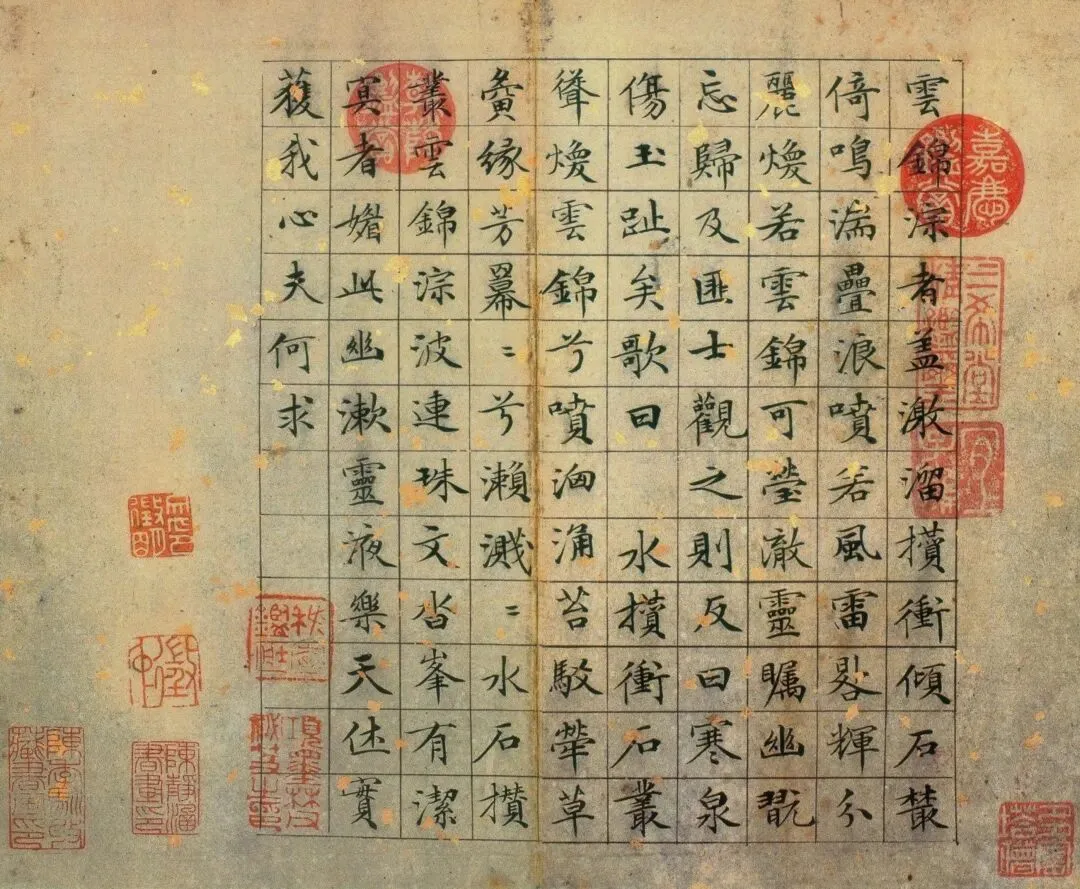 雲錦淙者蓋激溜攢衝傾石藂
倚鳴湍疊浪噴若風雷輝分
麗煥若雲錦可瑩徹靈矚幽翫
忘歸及匪士觀之則反曰寒泉
傷玉趾矣歌曰 水攢衝石叢
聳煥雲錦兮噴洶涌苔駮犖草
夤緣芳冪〻兮瀨濺〻水石攢
叢雲錦淙波連珠文沓峯有潔
冥者媚此幽漱靈液樂天休實
獲我心夫何求
嘉慶鑑賞
三希堂精鑑璽
宜子孫